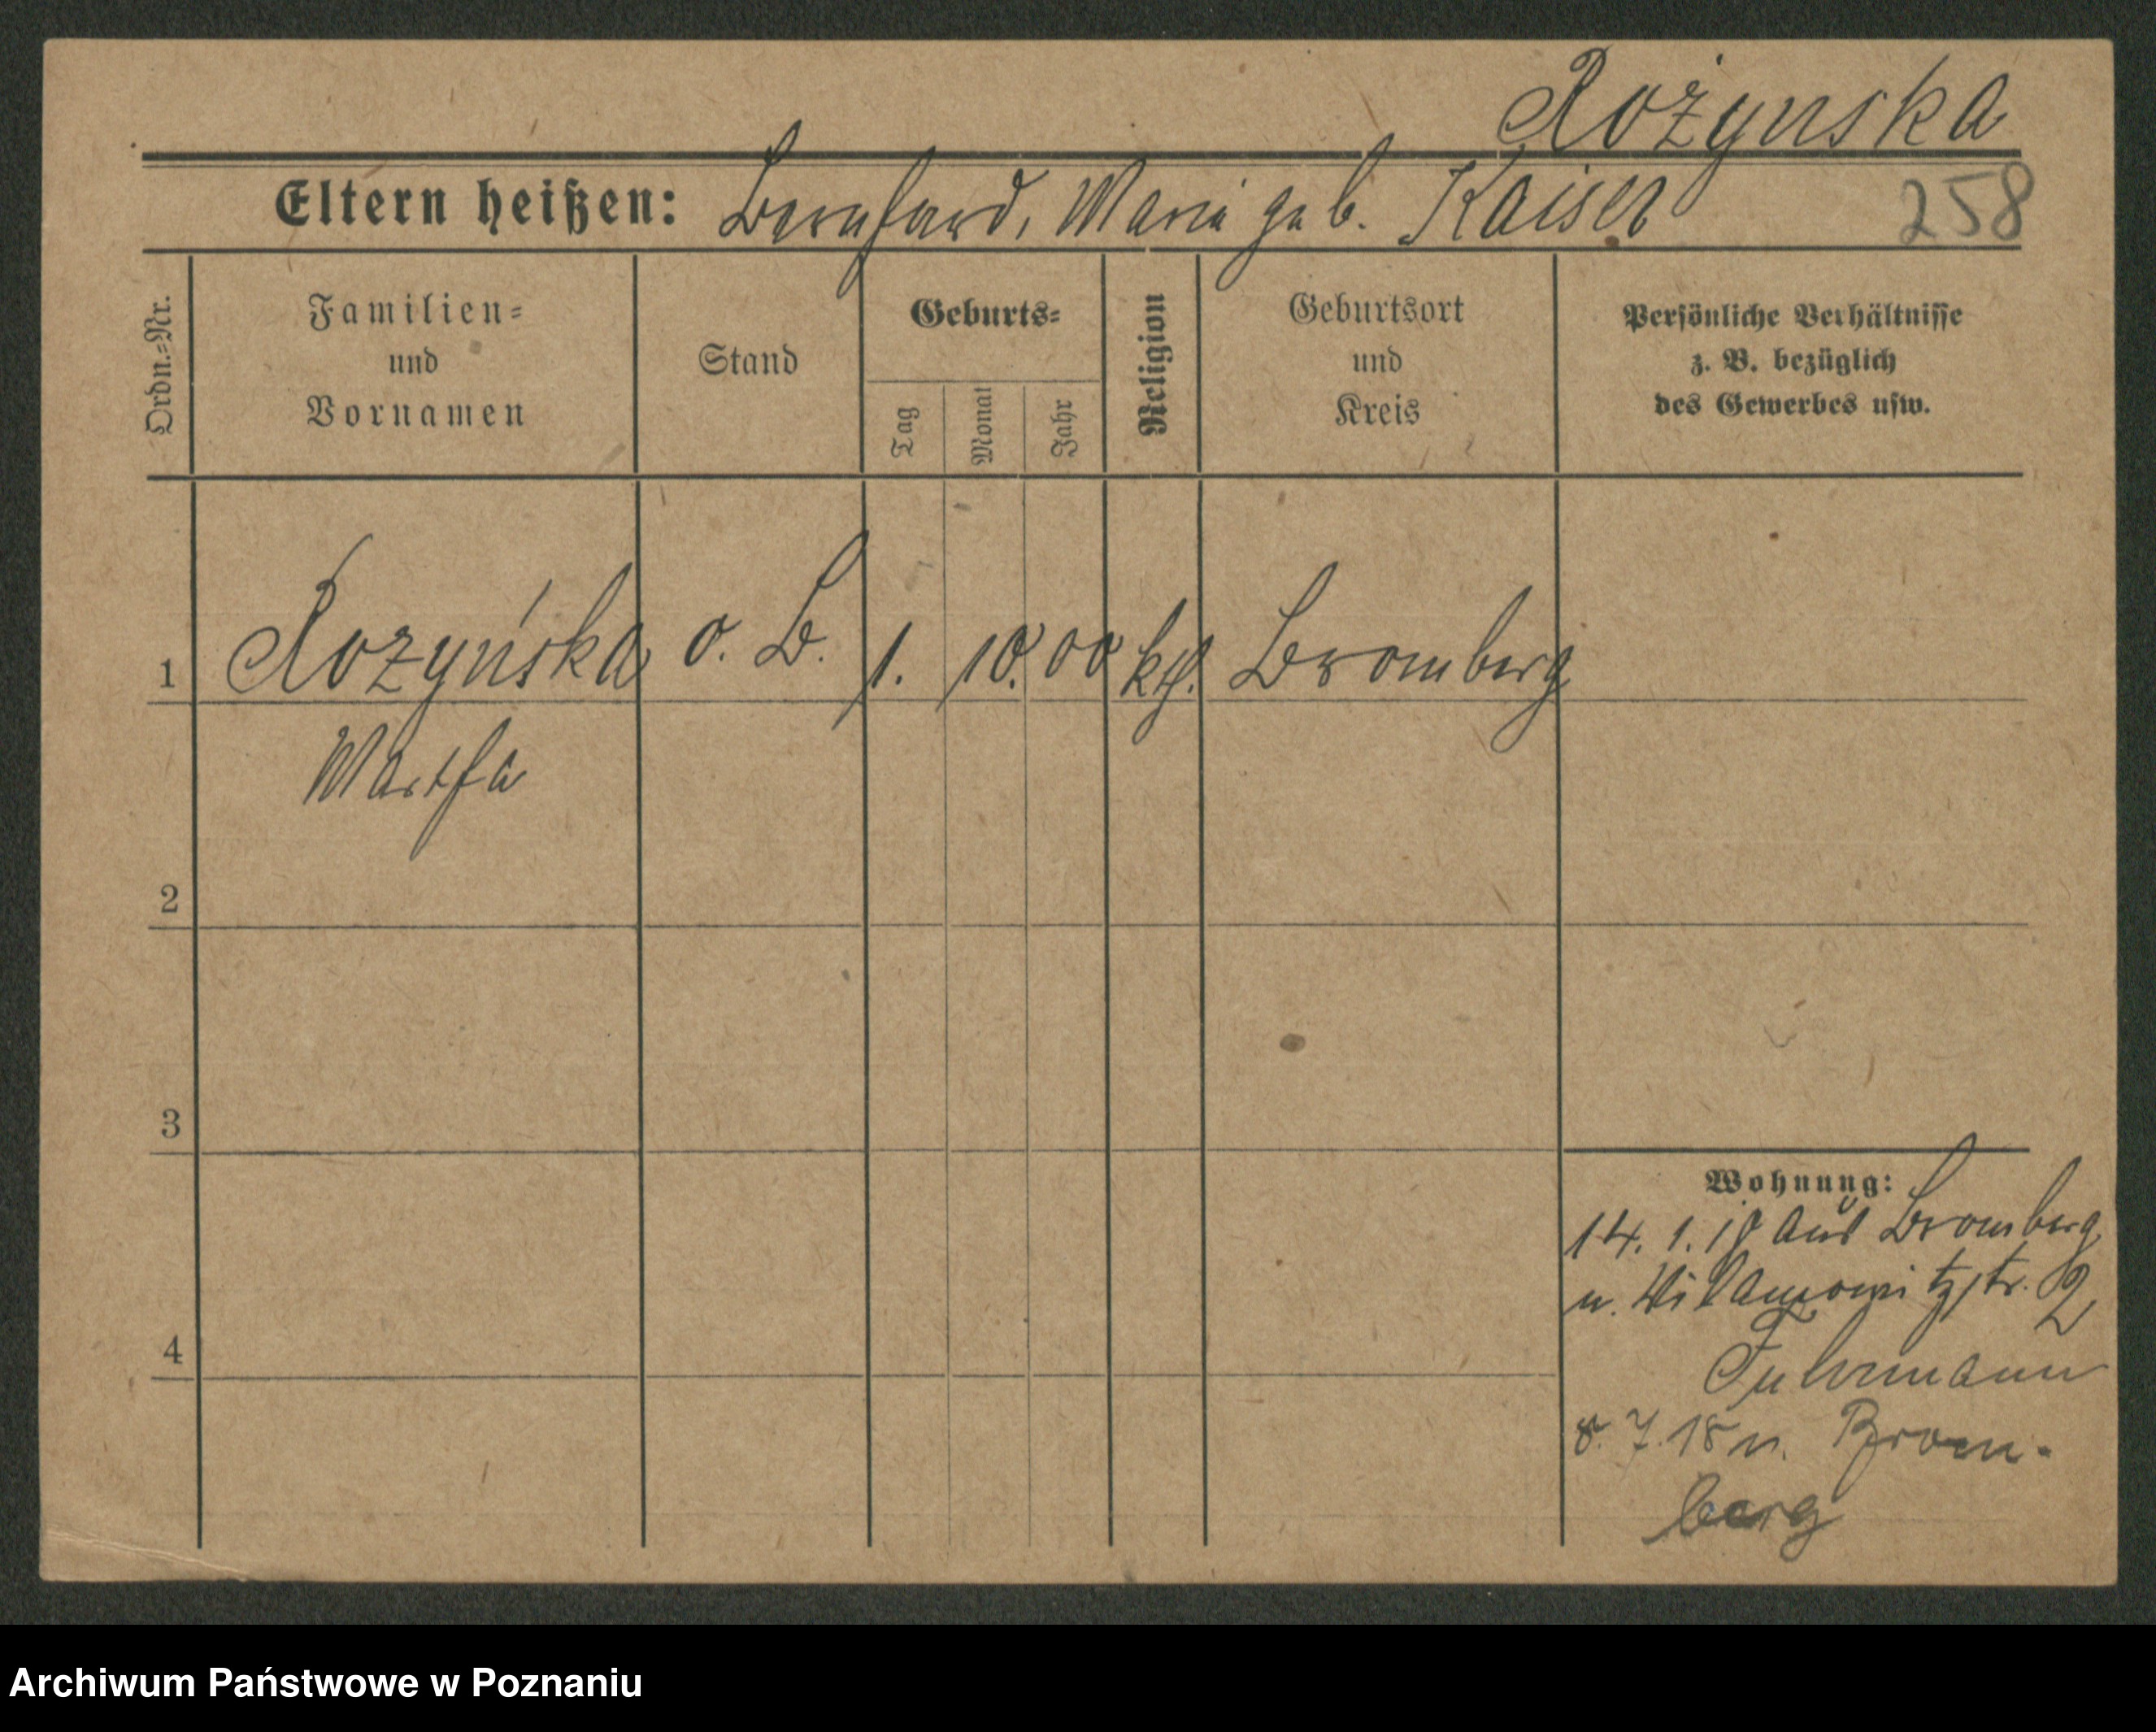 Rożynska
Eltern heißen: Bernhard, Maria geb. Kaiser 258
Ordn.-Nr.
Familien-
und
Vornamen
Stand
Geburts-
Tag
Monat
Jahr
Religion
Geburtsort
und
Kreis
Persönliche Verhältnisse
z. B. bezüglich
des Gewerbes usw.
1 Rozyńska o. B. 1. 10. 00 kth. Bromberg
Martha
2
3
4
Wohnung:
14. 1. 18 aus Bromberg
n. Wilamowitzstr. 2,
Fuhrmann
8. 7. 18 n. Brom-
berg
Archiwum Państwowe w Poznaniu